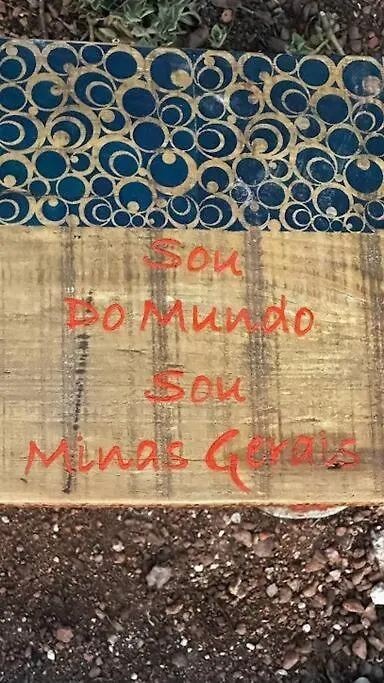 Sou
Do Mundo
Sou
Minas Gerais